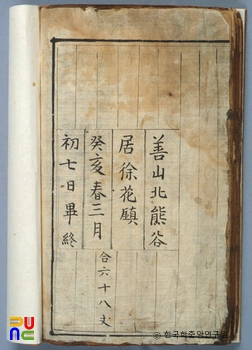 善山北熊谷
居徐花䫴
癸亥春三月
初七日畢終
合六十八丈
ⓒ한국학중앙연구원